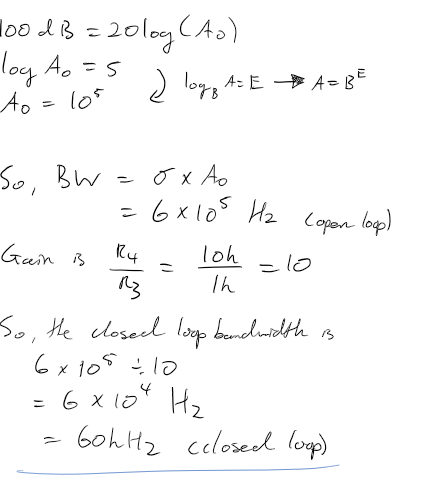 100 dB = 20log(A₀)
log A₀ = 5
A₀ = 10⁵
log_B A = E → A = B^E
So, BW = σ × A₀
= 6 × 10⁵ Hz (open loop)
Gain is R₄/R₃ = 10k/1k = 10
So, the closed loop bandwidth is
6 × 10⁵ ÷ 10
= 6 × 10⁴ Hz
= 60kHz (closed loop)